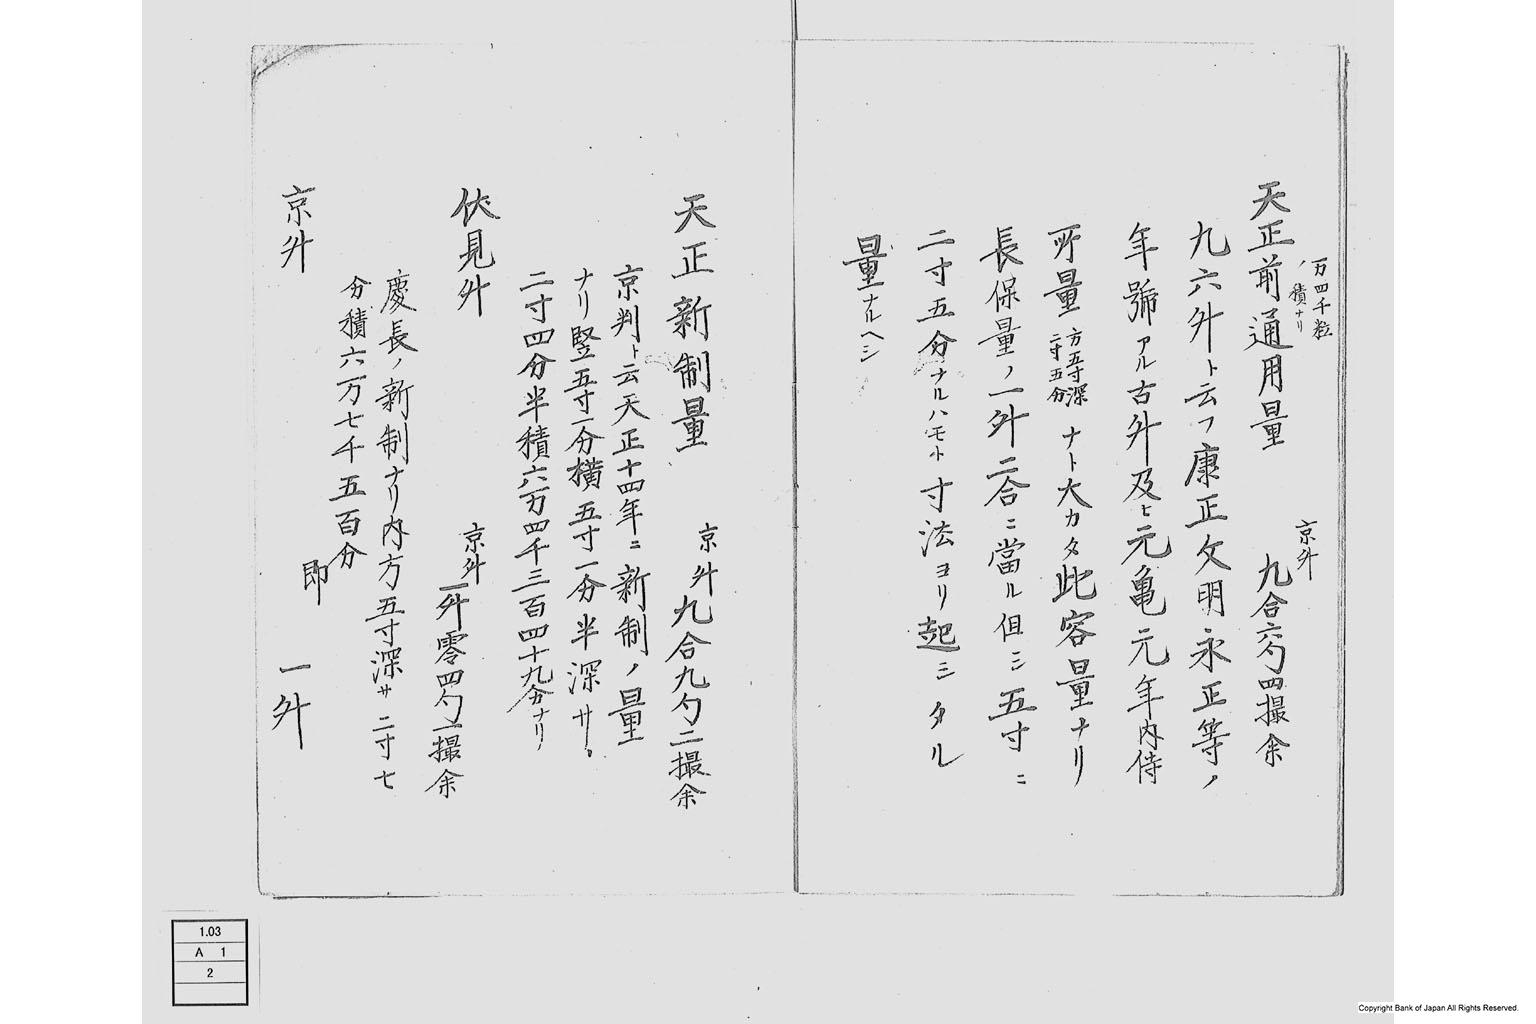 万四千粒
ノ積ナリ
天正前通用量
京升
九合六勺四撮余
九六升ト云フ康正文明永正等ノ
年號アル古升及ヒ元亀元年内侍
所量方五寸深二寸五分ナト大カタ此容量ナリ
長保量ノ一升二合ニ當ル但シ五寸ニ
二寸五分ナルハモト寸法ヨリ起シタル
量ナルヘシ
天正新制量
京升九合九勺二撮余
京判ト云天正十四年ニ新制ノ量
ナリ竪五寸一分横五寸一分半深サ
二寸四分半積六万四千三百四十九分ナリ
伏見升
京升
一升零四勺一撮余
慶長ノ新制ナリ内方五寸深サ二寸七
分積六万七千五百分
京升
即
一升
1.03
A 1
2
Copyright Bank of Japan All Rights Reserved.